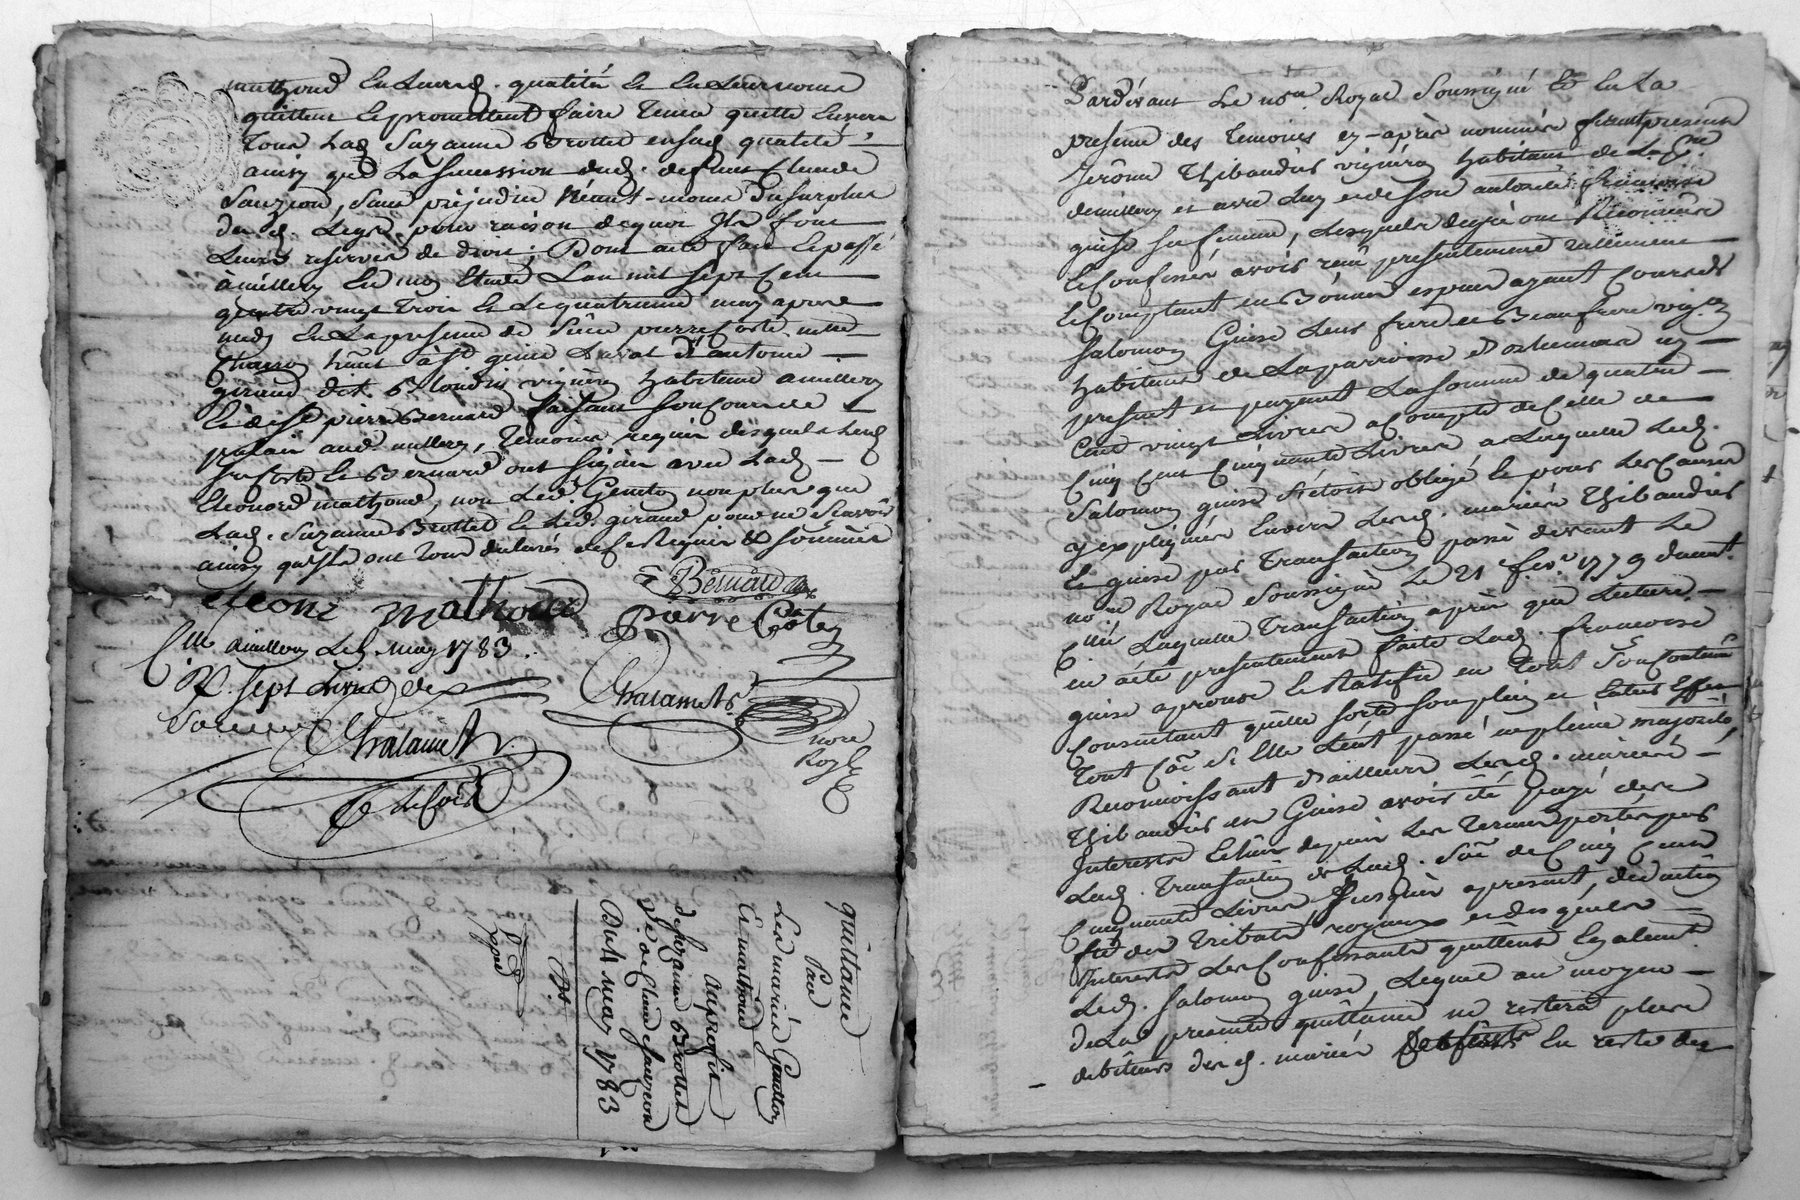 mathoud En Leursd. qualités Et En Leurs noms
quittent Et promettent faire Tenir quitte Envers
Tous Lad. Suzanne Brottet en sad. qualité,
ainsy que La succession dud. defunt Claude
Sauzion, sans préjudice Néant-moins du surplus
du d. Legs. pour raison de quoi Ils font
Leurs reserves de droit; Dont acte fait Et passé
à millery En mon Etude L'an mil sept Cent
quatre vingt Trois Et Le quatrieme may après
midy En La presence de pierre Coste
giraud dit Blondin vigneron habitans a millery
pierre Bernard faisant son Cours de
aud. millery, Temoins requis desquels Lesd.
srs Coste Et Bernard ont signés avec Lad.
Eleonord mathoud, non Led. Genetoy non plus que
Lad. Suzanne Brottet Et Led. giraud pour ne sçavoir
ainsy qu'ils ont Tous declarés de ce Requis Et Sommés
Eleonr mathoud
Bernard
pierre Coste
Cllé a millery Le may 1783.
R. sept Livres dix
Chalamet
nore
Royl
Chalamet
quittance
Par
Les mariés Genetoy
Et mathoud
Au profit
de suzanne Brottet
Ve. de Claude Sauzion
Du 4 may 1783
Pardevant Le nore. Royal Soussigné Et En La
presence des Temoins cy-après nommés furent presents
Jerôme Thibaudier vigneron habitant de
de millery et avec Luy et de son autorité francoise
guise sa femme, Lesquels de gré ont Reconnu
Et Confessé avoir reçu présentement reellement
Et Comptant en Bonnes especes ayant Cours de
Salomon Guise Leur frere et Beaufrere vigron
habitant de La parroisse d'
present et payant La somme de quatre
Cent vingt Livres a Compte de Celle de
Cinq Cent Cinquante Livres a Laquelle Led.
Salomon guise s'étoit obligé Et pour Les Causes
y expliquées Envers Lesd. mariés Thibaudier
Et guise par Transaction passé devant Le
nore Royal Soussigné Le 21 fevr. 1779 duemt.
Cllé Laquelle Transaction après que Lecture
en a été presentement faite Lad. francoise
guise aprouve Et Ratifie en Tout son Contenu
Consentant qu'elle sorte son plein et Entier Effet
Tout Coe. si Elle L'eut passé en pleine majorité,
Reconnoissant d'ailleurs Lesd. mariés
Thibaudier et Guise avoir été payé des
Interests Echus depuis Les Termes portés par
Lad. Transaction de Lad. Soe. de Cinq Cent
Cinquante Livres Jusques apresent, deduction
fte des Tributs royaux et desquels
Interests Les Confessants quittent Egalemt.
Led. Salomon guise, Lequel au moyen
de La presente quittance ne restera plus
debiteur desd. mariés En reste des